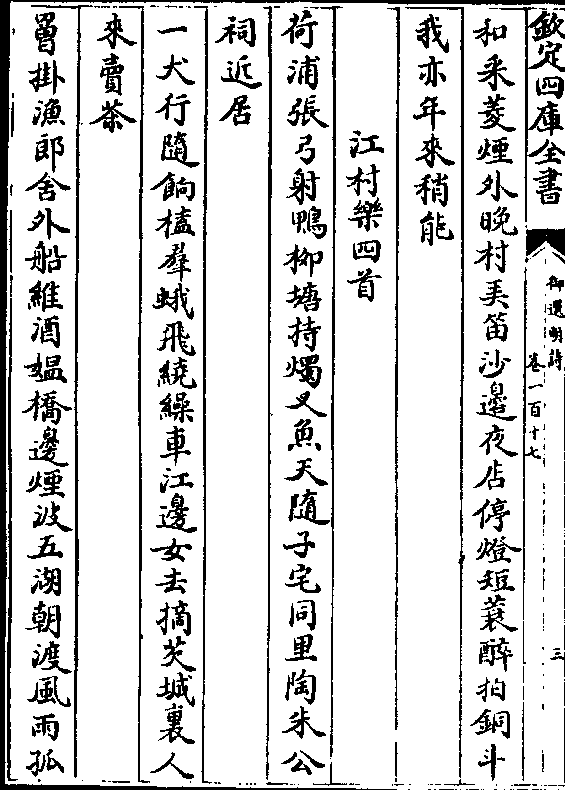 欽定四庫全書
御選明詩
卷一百十七
三
和采菱煙外晚村弄笛沙邊夜店停燈短蓑醉拍銅斗
我亦年來稍能
江村樂四首
荷浦張弓射鴨柳塘持燭叉魚天隨子宅同里陶朱公
祠近居
一犬行隨餉榼羣蛾飛繞繰車江邊女去摘芡城裏人
來賣茶
罾掛漁郎舍外船維酒媪橋邊煙波五湖朝渡風雨孤